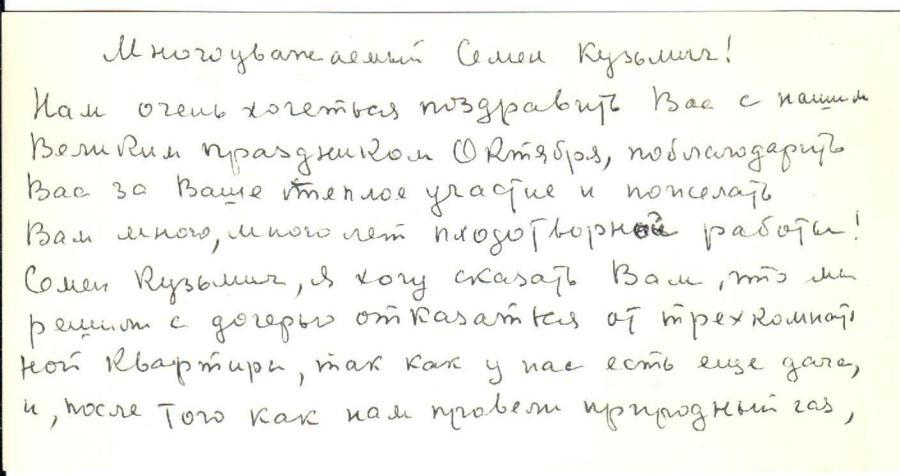 Многоуважаемый Семен Кузьмич!
Нам очень хочеться поздравить Вас с нашим
Великим праздником Октября, поблагодарить
Вас за Ваше теплое участие и пожелать
Вам много, много лет плодотворной работы!
Семен Кузьмич, я хочу сказать Вам, что мы
решили с дочерью отказаться от трехкомнат
ной квартиры, так как у нас есть еще дача,
и, после того как нам провели природный газ,